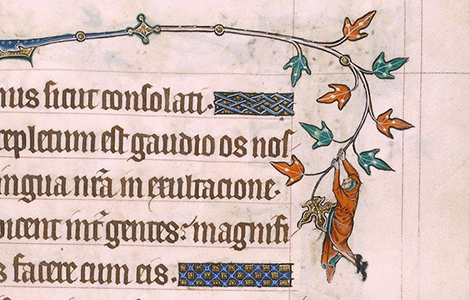 mus sicut consolati.
epletum est gaudio os nos
ingua nr̄a in exultacione.
dicent int̄ gentes: magnifi
s facere cum eis.